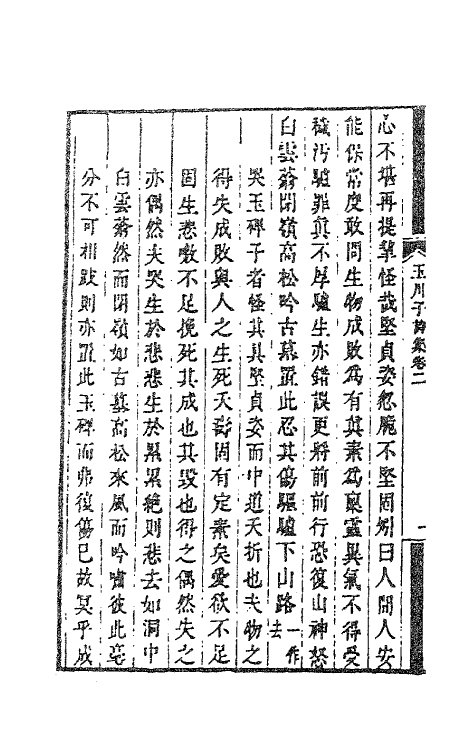 玉川子詩集卷二
一
心不堪再提挈怪哉堅貞姿忽脆不堅固矧曰人間人安
能保常度敢問生物成敗為有真素為稟靈異氣不得受
穢污驢罪真不厚驢生亦錯誤更將前前行恐復山神怒
白雲蓊閉嶺高松吟古墓置此忍其傷驅驢下山路一作去
哭玉碑子者怪其具堅貞姿而中道夭折也夫物之
得失成敗與人之生死夭壽固有定素矣愛欲不足
固生悲噭不足挽死其成也其毀也得之偶然失之
亦偶然夫哭生於悲悲生於累累絕則悲去如洞中
白雲蓊然而閉嶺如古墓高松來風而吟嘯彼此毫
分不可相跂則亦置此玉碑而弗復傷已故冥乎成